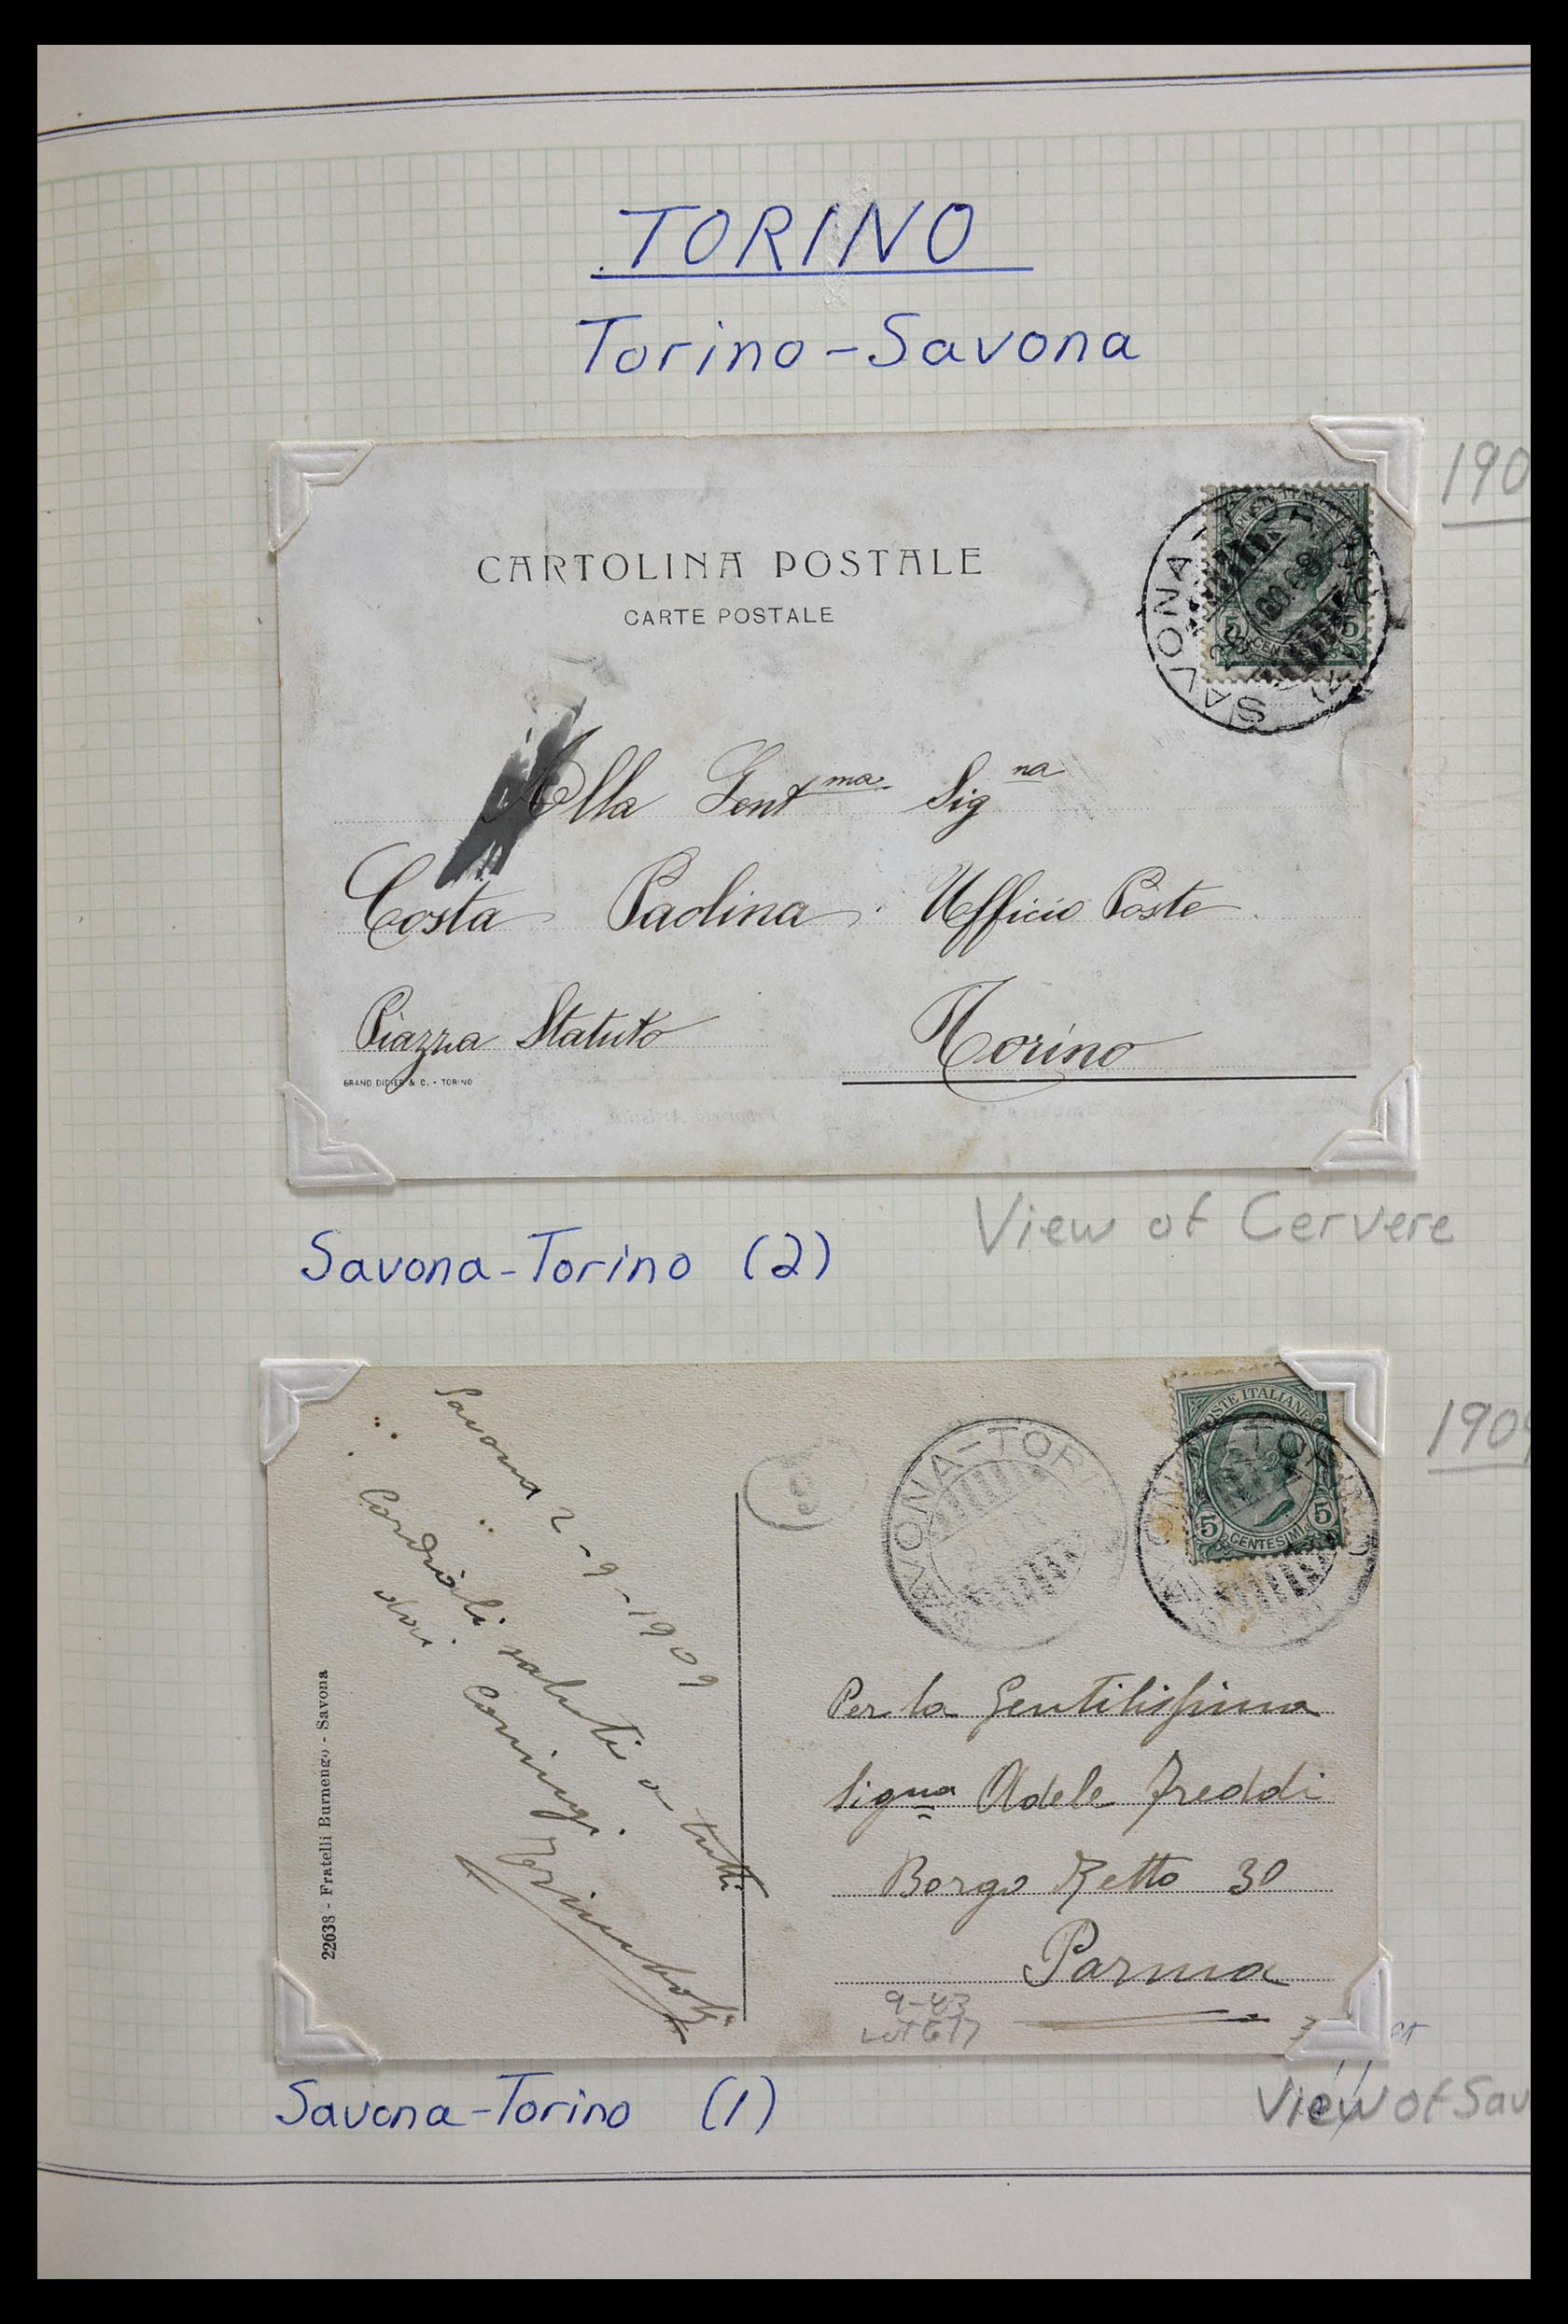 TORINO
Torino-Savona
190
CARTOLINA POSTALE
CARTE POSTALE
SAVONA
POSTE ITALIANE
5 CENTESIMI 5
Alla Gent ma Sig na
Costa Paolina Ufficio Poste
Piazza Statuto Torino
GRAND DIDIER & C. - TORINO
View of Cervere
Savona-Torino (2)
1909
Savona 2-9-1909
Cordiali saluti a tutti
dai
9
VONA-TORI
TORINO
POSTE ITALIANE
5 CENTESIMI 5
Per la Gentilissima
Signa Adele Freddi
Borgo Retto 30
Parma
9-43
Lot 617
22638 - Fratelli Burnengo - Savona
Savona-Torino (1)
View of Sav